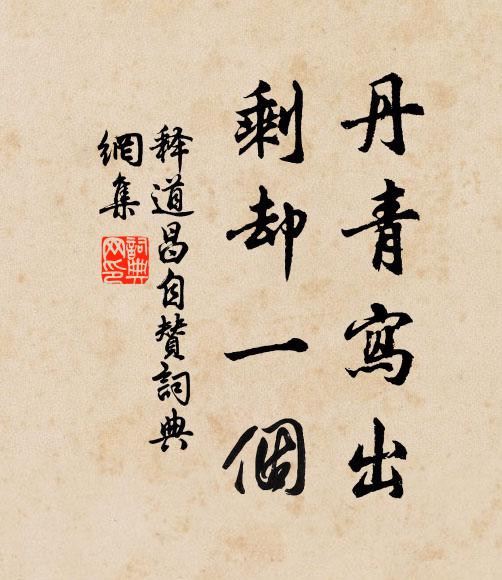 丹青寫出
剩却一個
释道昌自赞詞典
網集
詞典
网印